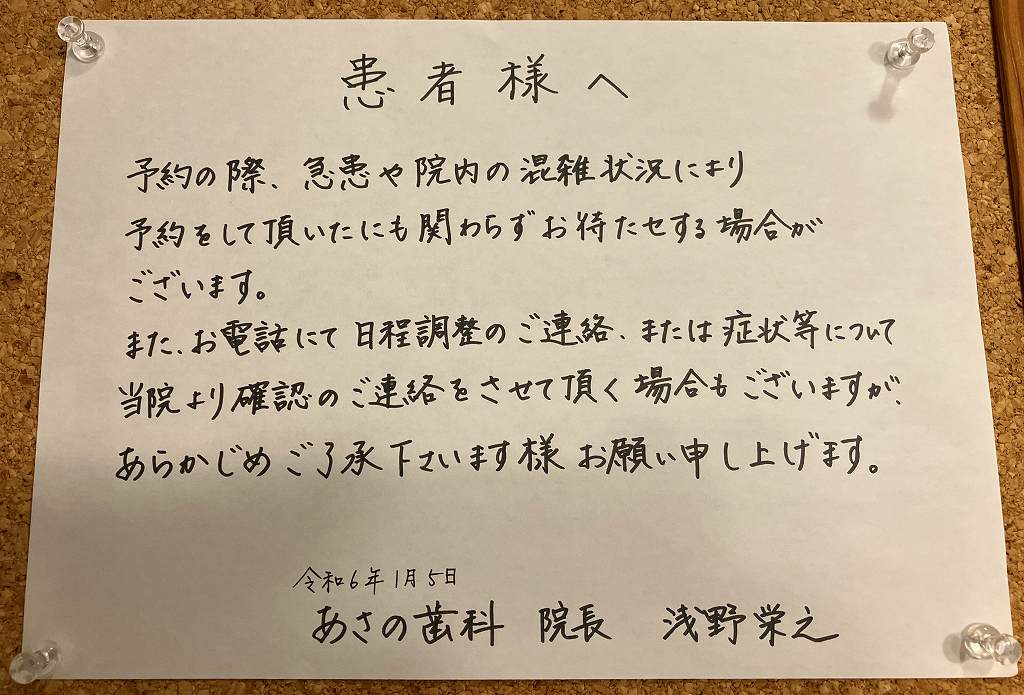 患者様へ
予約の際、急患や院内の混雑状況により
予約をして頂いたにも関わらずお待たせする場合が
ございます。
また、お電話にて日程調整のご連絡、または症状等について
当院より確認のご連絡をさせて頂く場合もございますが、
あらかじめご了承下さいます様お願い申し上げます。
令和6年1月5日
あさの歯科 院長 浅野栄之